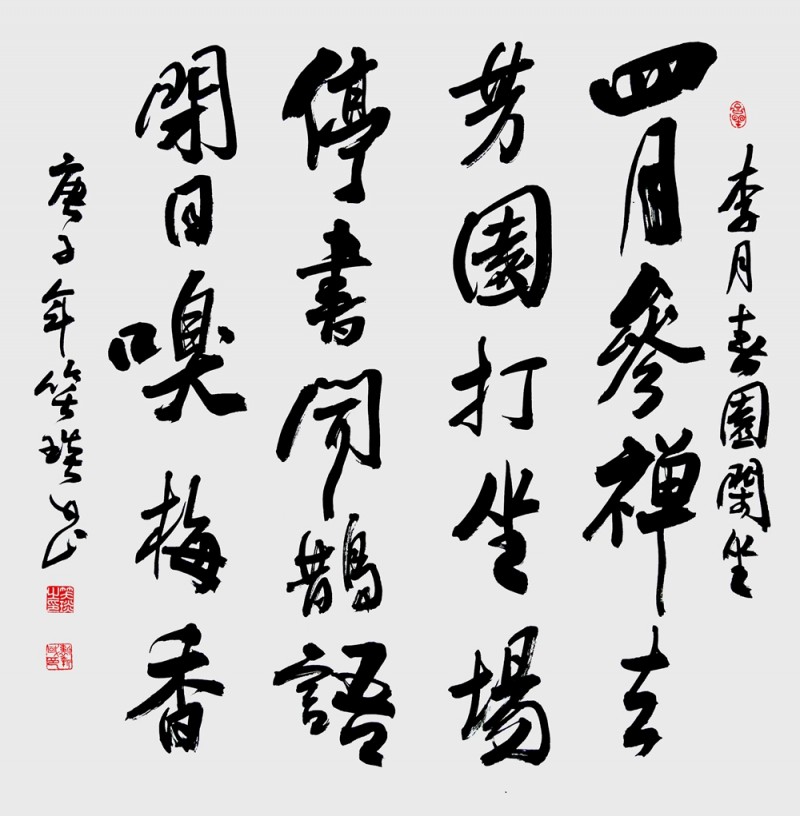 李月春園閑坐
四月參禪去
芳園打坐場
停書聞鵲語
閉目嗅梅香
庚子年